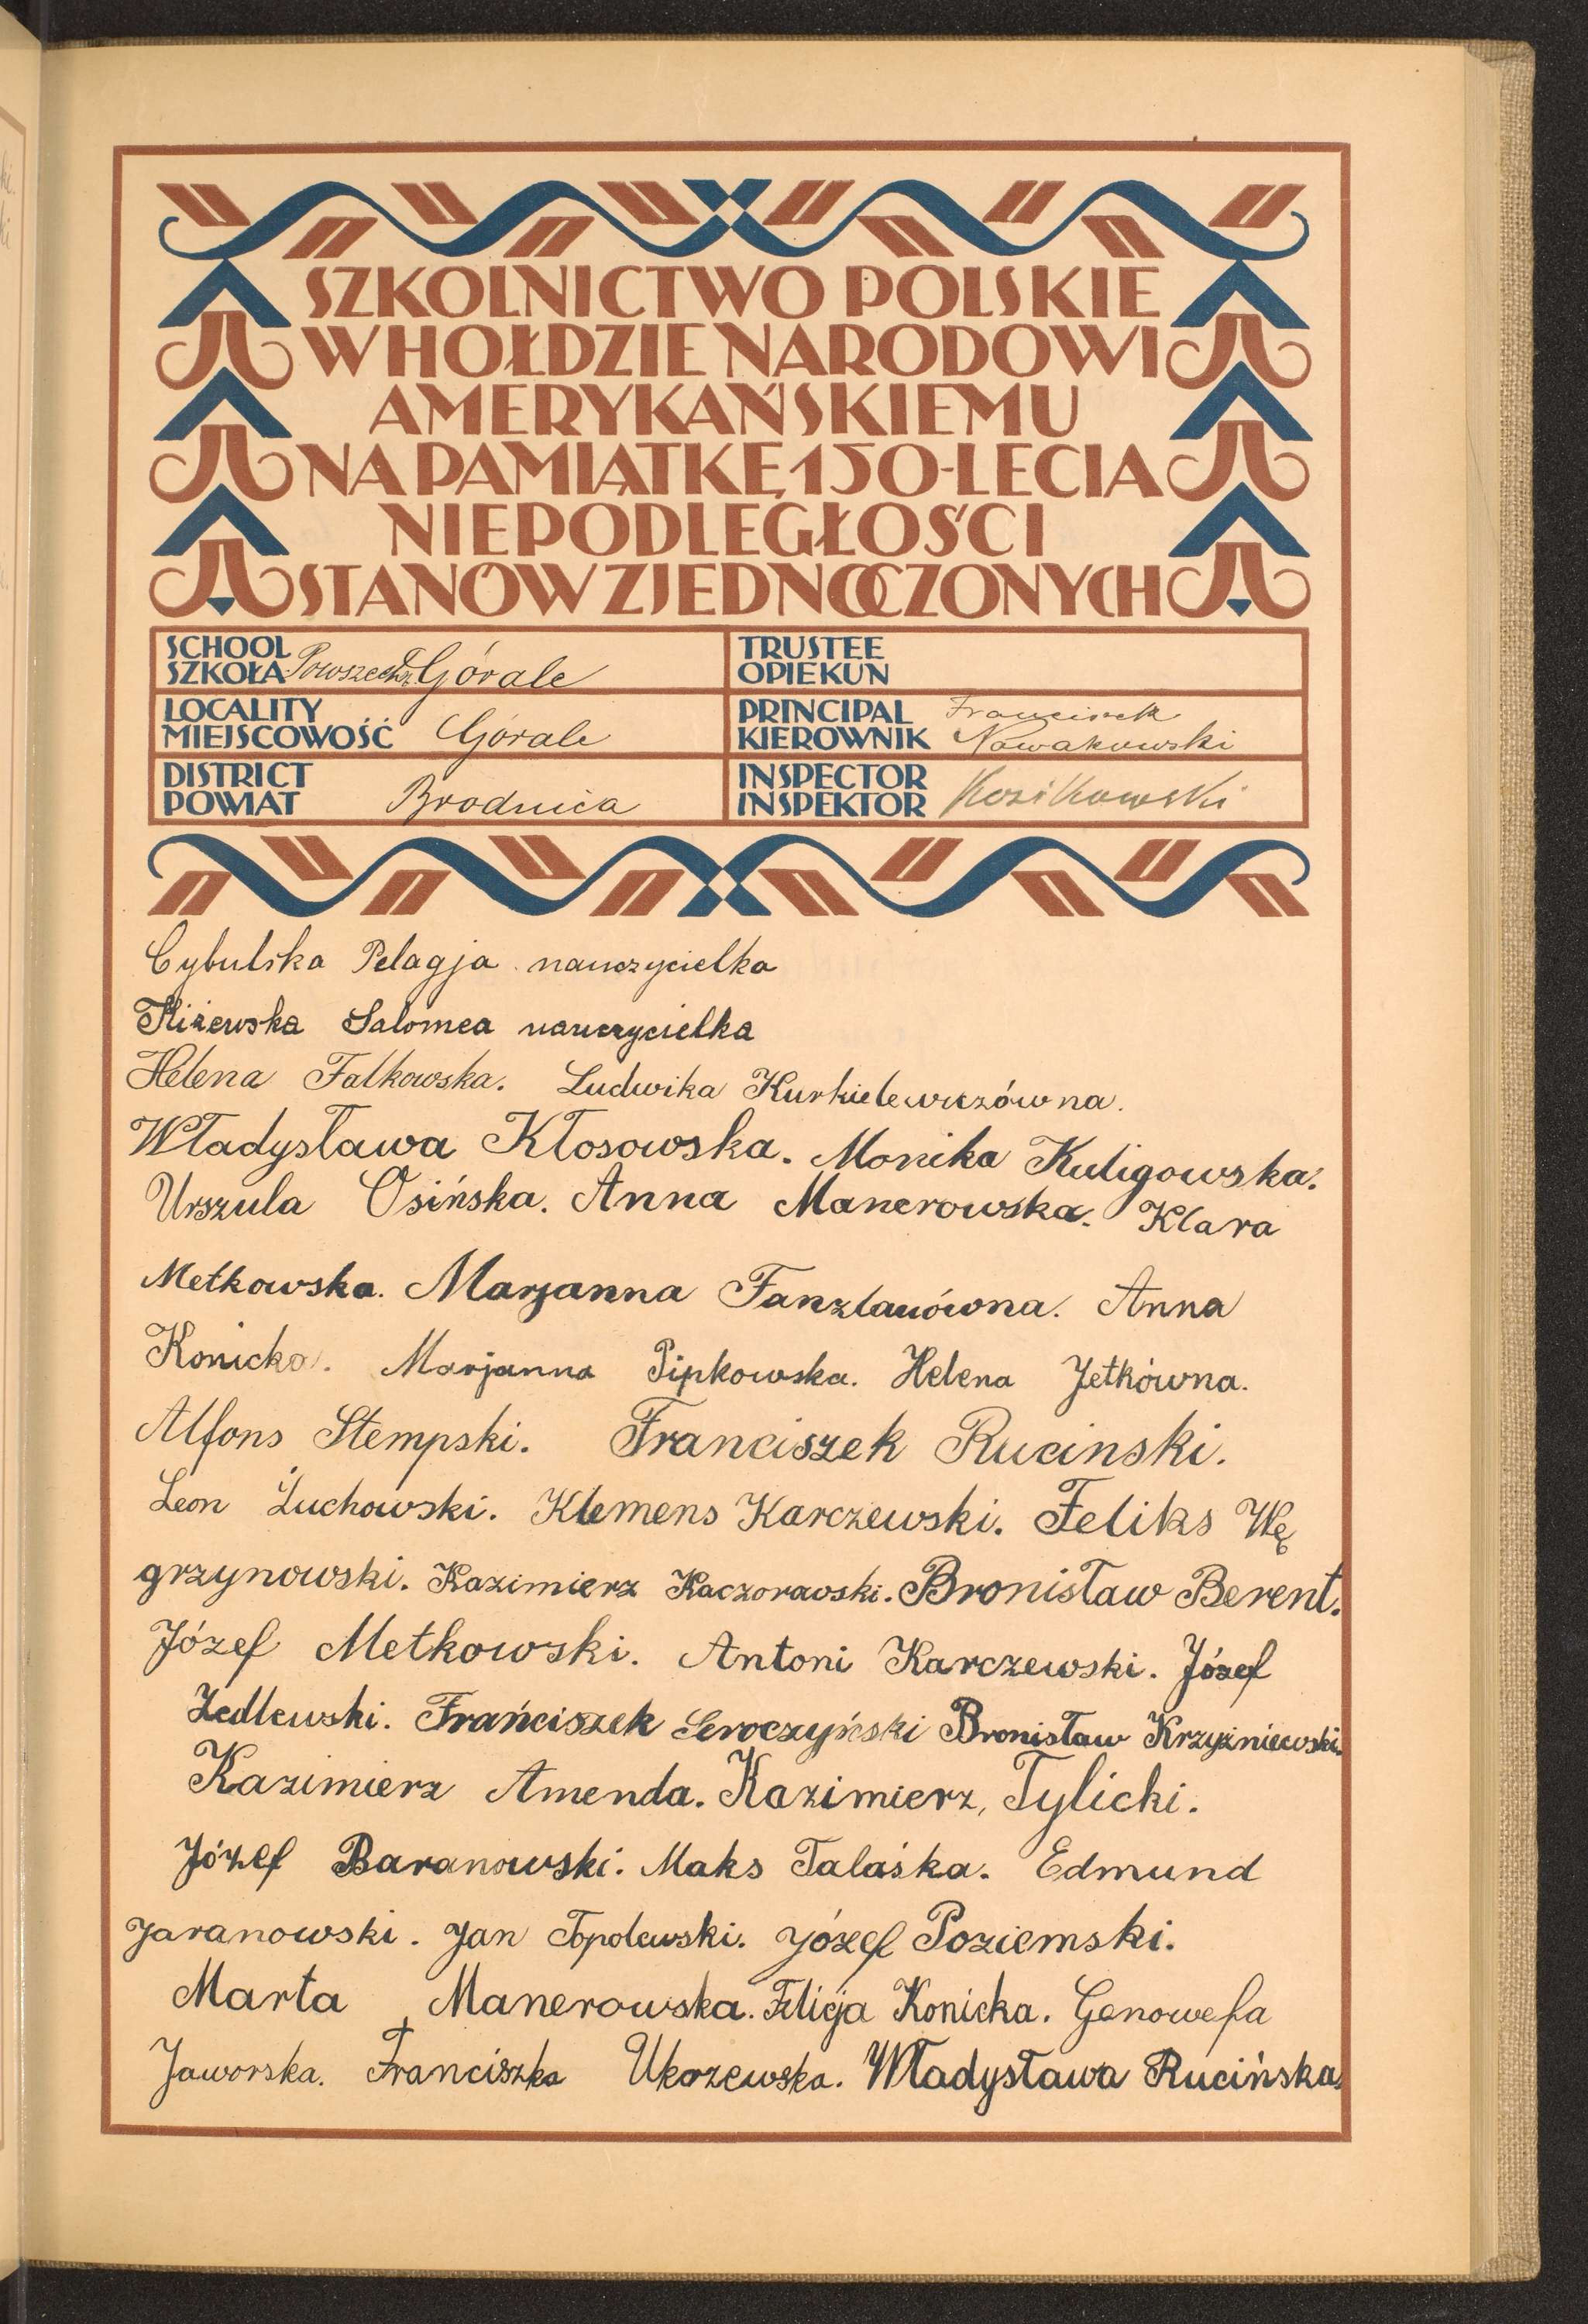 SZKOLNICTWO POLSKIE
W HOŁDZIE NARODOWI
AMERYKAŃSKIEMU
NA PAMIĄTKĘ 150-LECIA
NIEPODLEGŁOŚCI
STANÓW ZJEDNOCZONYCH
SCHOOL
SZKOŁA Powszechn. Górale
TRUSTEE
OPIEKUN
LOCALITY
MIEJSCOWOŚĆ Górale
PRINCIPAL Franciszek
KIEROWNIK Nowakowski
DISTRICT
POWIAT Brodnica
INSPECTOR
INSPEKTOR Kozikowski
Cybulska Pelagja nauczycielka
Kiżewska Salomea nauczycielka
Helena Falkowska. Ludwika Kurkielewiczówna.
Władysława Kłosowska. Monika Kuligowska.
Urszula Osińska. Anna Manerowska. Klara
Metkowska. Marjanna Fanzlauówna. Anna
Konicka. Marjanna Pipkowska. Helena Jetkówna.
Alfons Stempski. Franciszek Rucinski.
Leon Żuchowski. Klemens Karczewski. Feliks Wę
grzynowski. Kazimierz Kaczorawski. Bronisław Berent.
Józef Metkowski. Antoni Karczewski. Józef
Zedlewski. Frańciszek Seroczyński Bronisław Krzyżniewski.
Kazimierz Amenda. Kazimierz, Tylicki.
Józef Baranowski. Maks Talaśka. Edmund
Jaranowski. Jan Topolewski. Józef Poziemski.
Marta Manerowska. Felicja Konicka. Genowefa
Jaworska. Franciszka Ukorzewska. Władysława Rucińska.